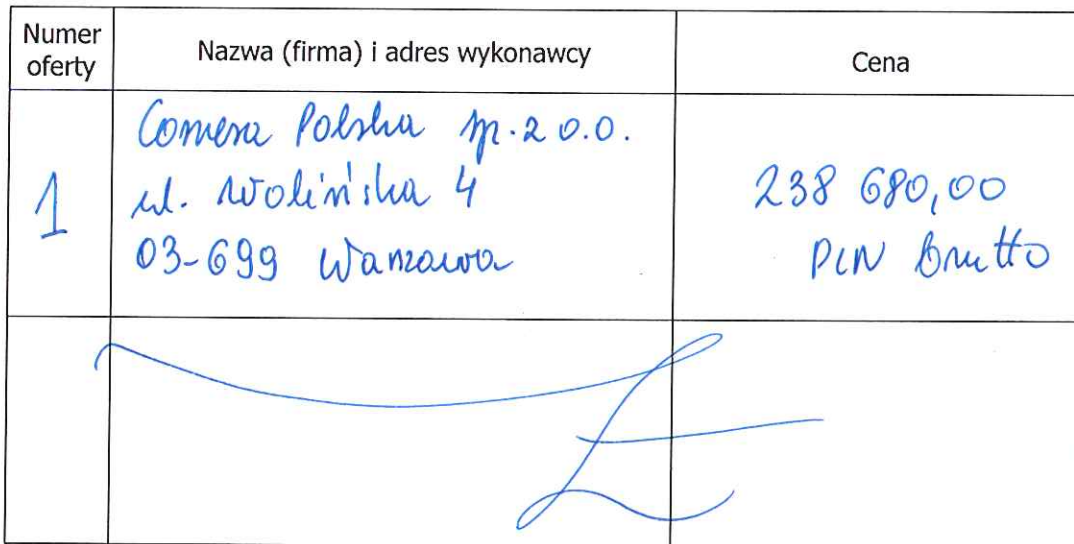 Numer oferty
Nazwa (firma) i adres wykonawcy
Cena
1
Comesa Polska sp. z o.o.
ul. Wolińska 4
03-699 Warszawa
238 680,00
PLN Brutto